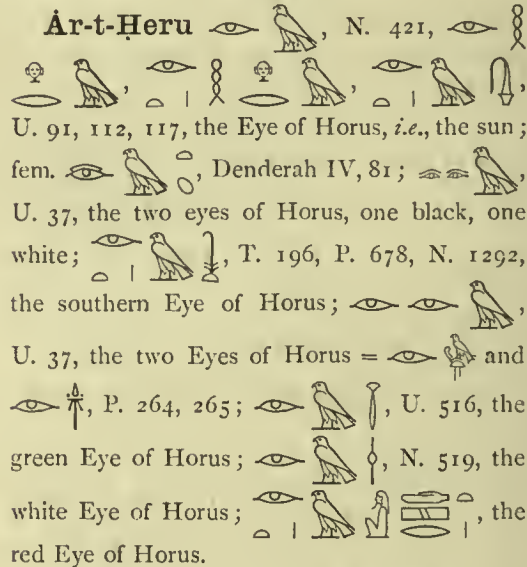 Ȧr-t-Ḥeru 𓁹𓅃, N. 421, 𓁹𓎛
𓁷𓂋𓅃, 𓁹𓏏𓏤𓎛𓁷𓂋𓅃, 𓁹𓏏𓏤𓅃,
U. 91, 112, 117, the Eye of Horus, i.e., the sun;
fem. 𓅃, Denderah IV, 81; 𓅃,
U. 37, the two eyes of Horus, one black, one
white; 𓁹𓏏𓏤𓅃, T. 196, P. 678, N. 1292,
the southern Eye of Horus; 𓁹𓁹𓅃,
U. 37, the two Eyes of Horus = 𓁹 and
𓁹, P. 264, 265; 𓁹𓅃𓇅, U. 516, the
green Eye of Horus; 𓁹𓅃𓌉, N. 519, the
white Eye of Horus; 𓁹𓏏𓏤𓅃, the
red Eye of Horus.